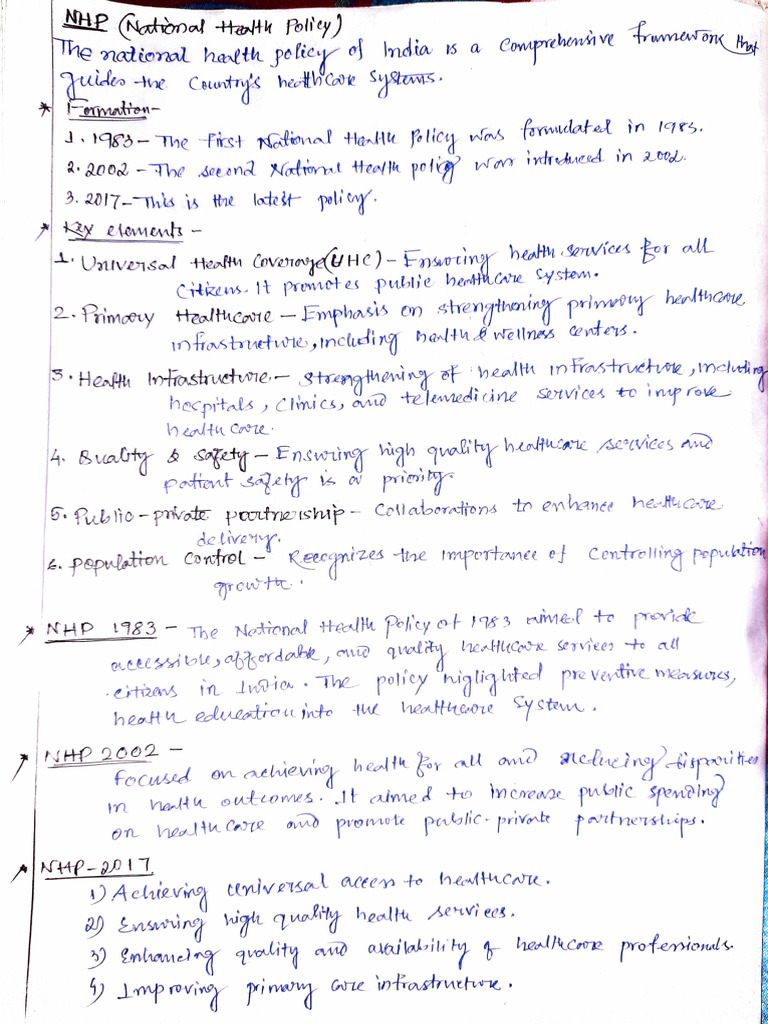 NHP (National Health Policy)
The national health policy of India is a comprehensive framework that
guides the Country's healthcare systems.
* Formation-
1. 1983 - The first National Health Policy was formulated in 1983.
2. 2002 - The second National Health policy was introduced in 2002.
3. 2017 - This is the latest policy.
* Key elements -
1. Universal Health Coverage (UHC) - Ensuring health services for all
citizens. It promotes public healthcare system.
2. Primary Healthcare - Emphasis on strengthening primary healthcare
infrastructure, including health & wellness centers.
3. Health Infrastructure - Strengthening of health infrastructure, including
hospitals, clinics, and telemedicine services to improve
healthcare.
4. Quality & safety - Ensuring high quality healthcare services and
patient safety is a priority.
5. Public-private partnership - Collaborations to enhance healthcare
delivery.
6. Population Control - Recognizes the importance of controlling population
growth.
* NHP 1983 - The National Health Policy of 1983 aimed to provide
accessible, affordable, and quality healthcare services to all
citizens in India. The policy higlighted preventive measures,
health education into the healthcare system.
* NHP 2002 -
Focused on achieving health for all and reducing disparities
in health outcomes. It aimed to increase public spending
on healthcare and promote public-private partnerships.
* NHP-2017
1) Achieving universal access to healthcare.
2) Ensuring high quality health services.
3) Enhancing quality and availability of healthcare professionals.
4) Improving primary care infrastructure.